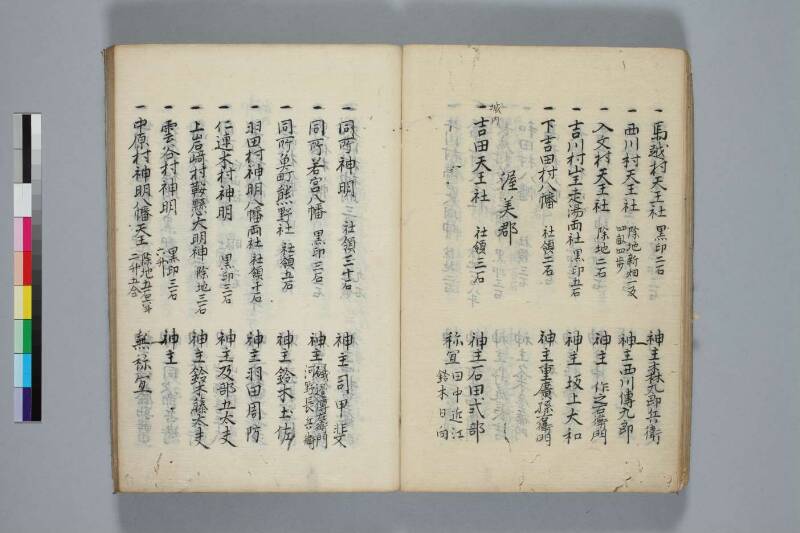 一 馬越村天王社 黒印二石 神主森九郎兵衛
一 西川村天王社 除地新畑一反四畝四歩 神主西川傳九郎
一 入文村天王社 除地二石 神主 作之右衛門
一 吉川村山王走湯両社 黒印五石 神主坂上大和
一 下吉田村八幡 社領二石 神主重廣孫右衛門
渥美郡
城内
一 吉田天王社 社領三石 神主石田式部
祢宜 田中近江
鈴木日向
一 同所神明 社領三十石 神主司甲斐
一 同所若宮八幡 黒印三石 神主 礒邊傳左衛門
河野長兵衛
一 同所魚町熊野社 社領五石 神主鈴木土佐
一 羽田村神明八幡両社 社領十石 神主羽田周防
一 仁連木村神明 黒印三石 神主及部五太夫
一 上岩崎村鞍懸大明神 除地三石 神主鈴木藤太夫
一 雲谷村神明 黒印三石六升 神主
一 中原村神明八幡天王 除地五石二斗二升五合 無祢宜